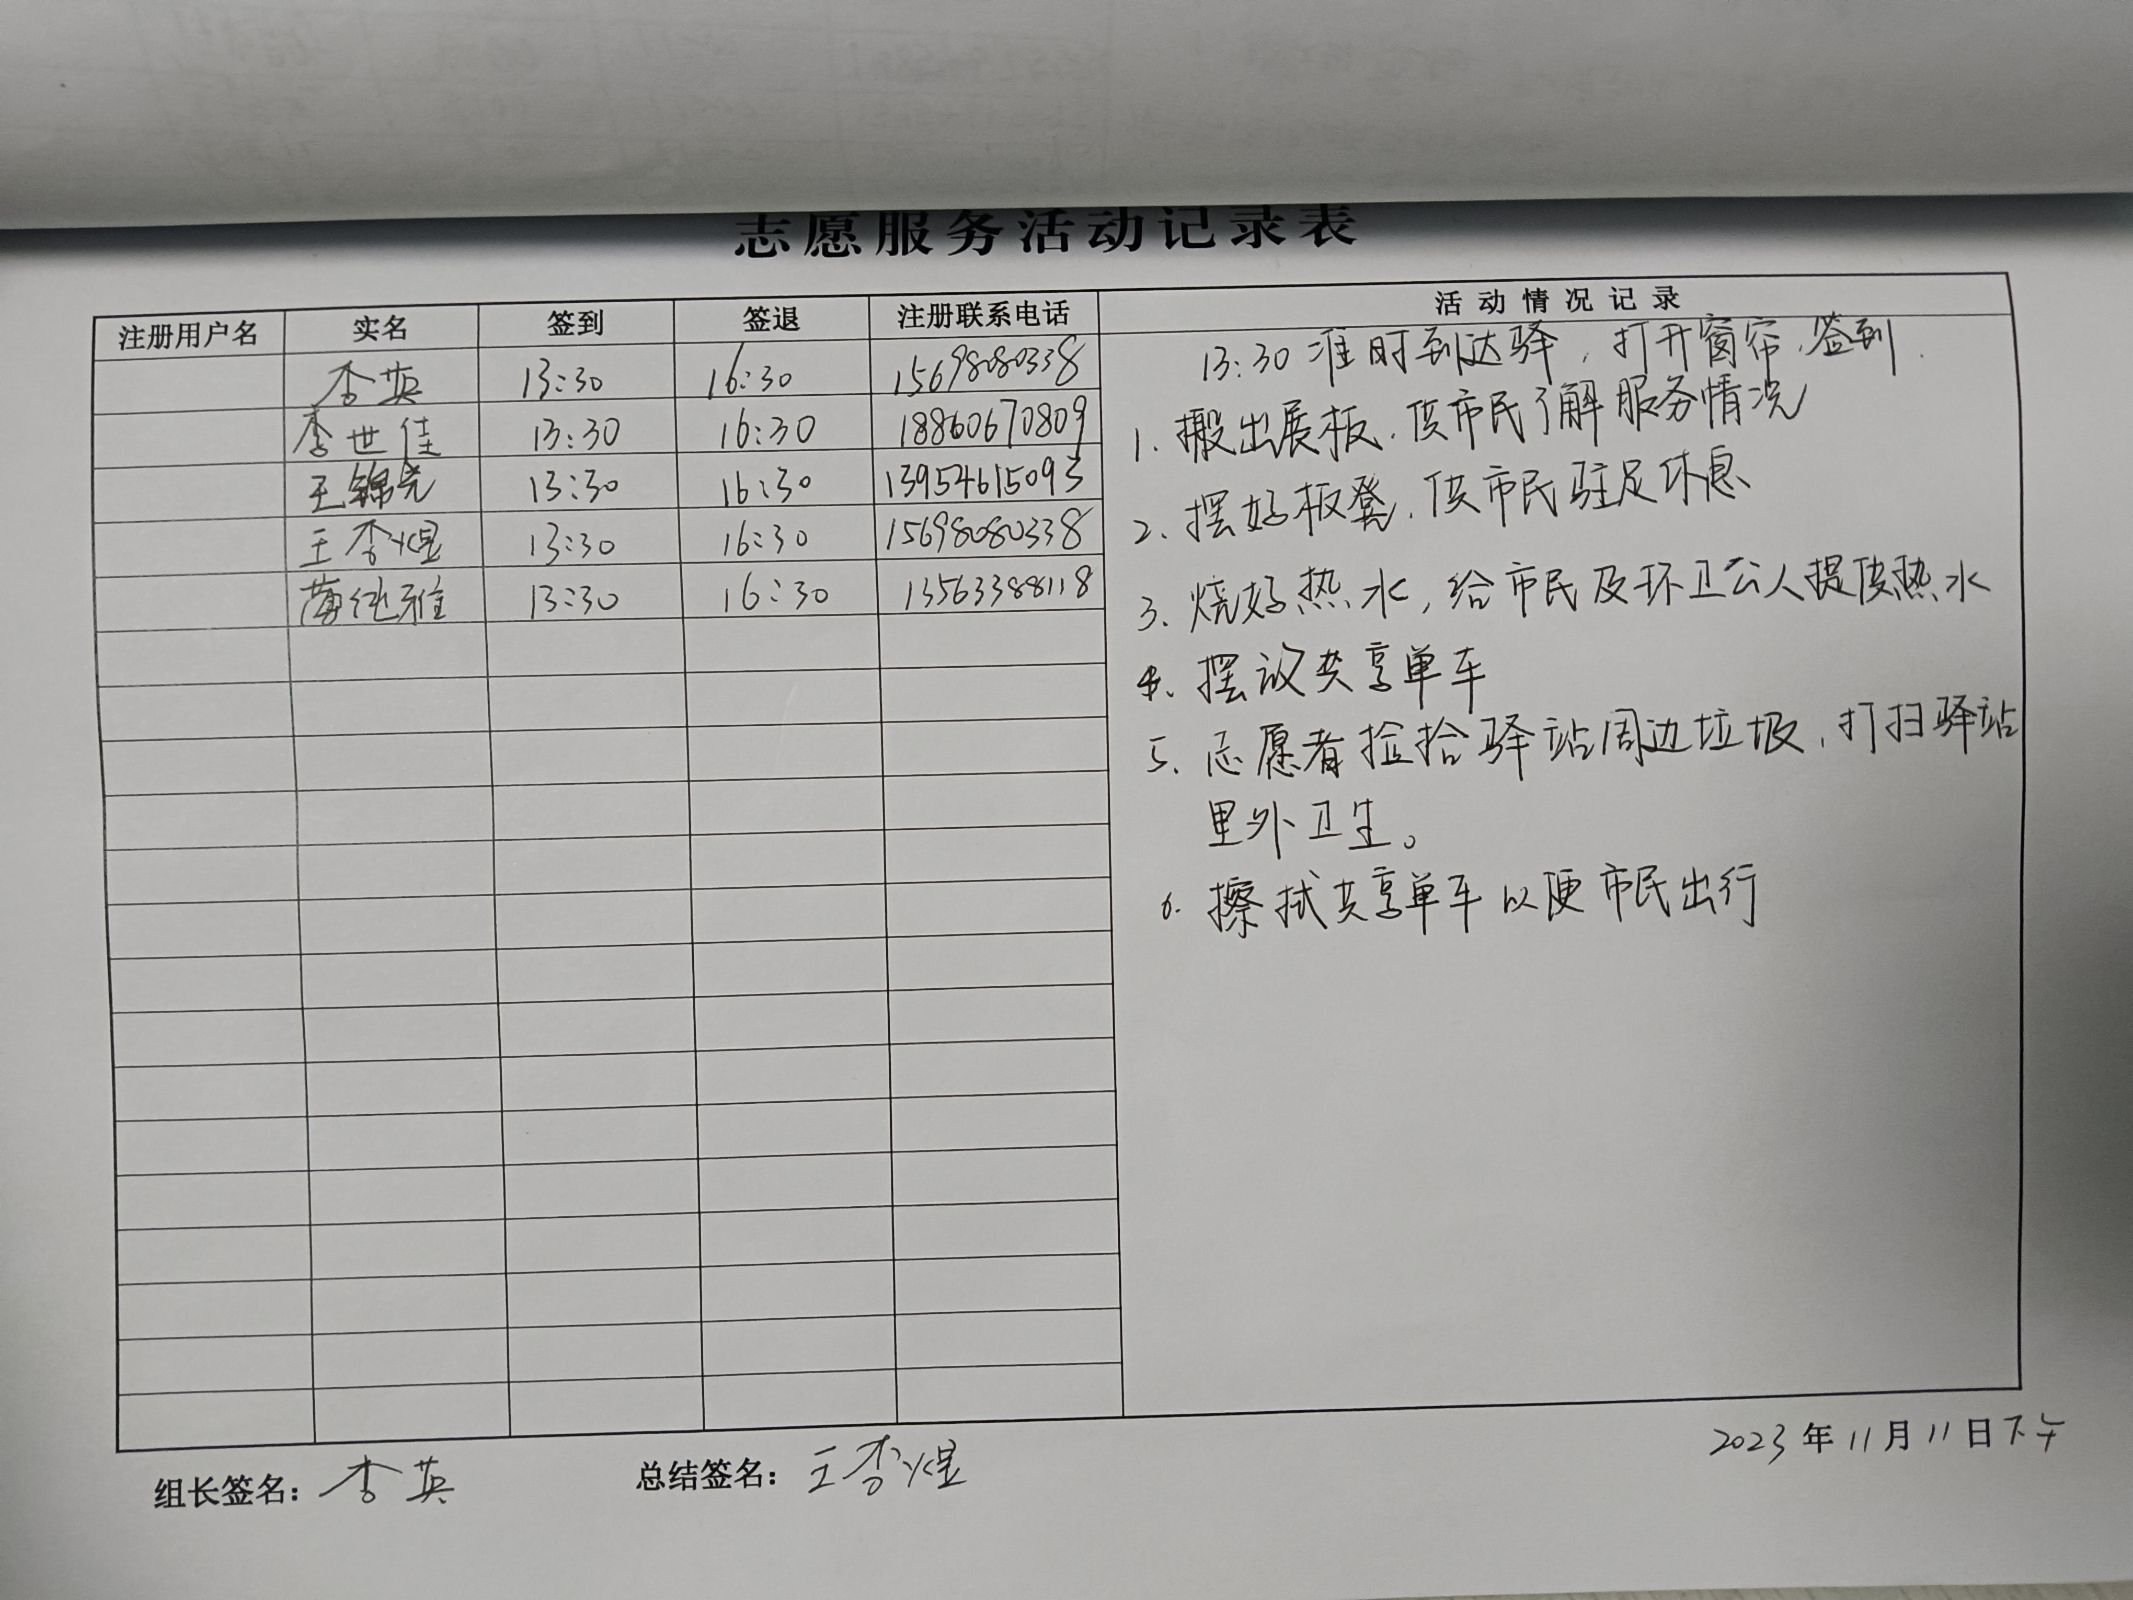 志愿服务活动记录表
注册用户名 实名 签到 签退 注册联系电话 活动情况记录
李英 13:30 16:30 15698080338
李世佳 13:30 16:30 18860670809
王锦尧 13:30 16:30 13954615093
王李煜 13:30 16:30 15698080338
薄纯雅 13:30 16:30 13563388118
13:30准时到达驿,打开窗帘,签到.
1.搬出展板,供市民了解服务情况
2.摆好板凳,供市民驻足休息
3、烧好热水,给市民及环卫工人提供热水
4、摆放共享单车
5、志愿者捡拾驿站周边垃圾,打扫驿站
里外卫生。
6.擦拭共享单车以便市民出行
2023年11月11日下午
组长签名:李英 总结签名:王李煜